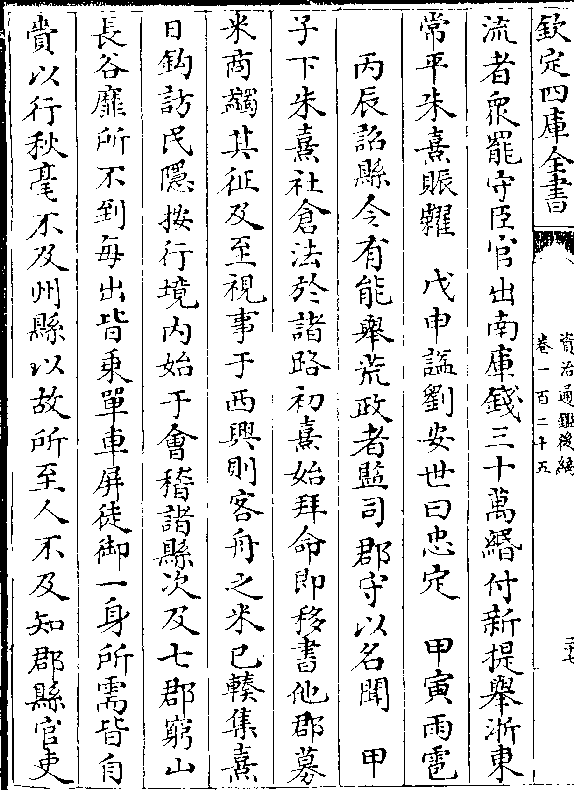 欽定四庫全書
資治通鑑後編
卷一百二十五
流者衆罷守臣官出南庫錢三十萬緡付新提舉浙東
常平朱熹賑糶　戊申謚劉安世曰忠定　甲寅雨雹
丙辰詔縣令有能舉荒政者監司郡守以名聞　甲
子下朱熹社倉法於諸路初熹始拜命即移書他郡募
米商蠲其征及至視事于西興則客舟之米已輳集熹
日鈎訪民隱按行境内始于會稽諸縣次及七郡窮山
長谷靡所不到每出皆乗單車屏徒御一身所需皆自
賫以行秋毫不及州縣以故所至人不及知郡縣官吏